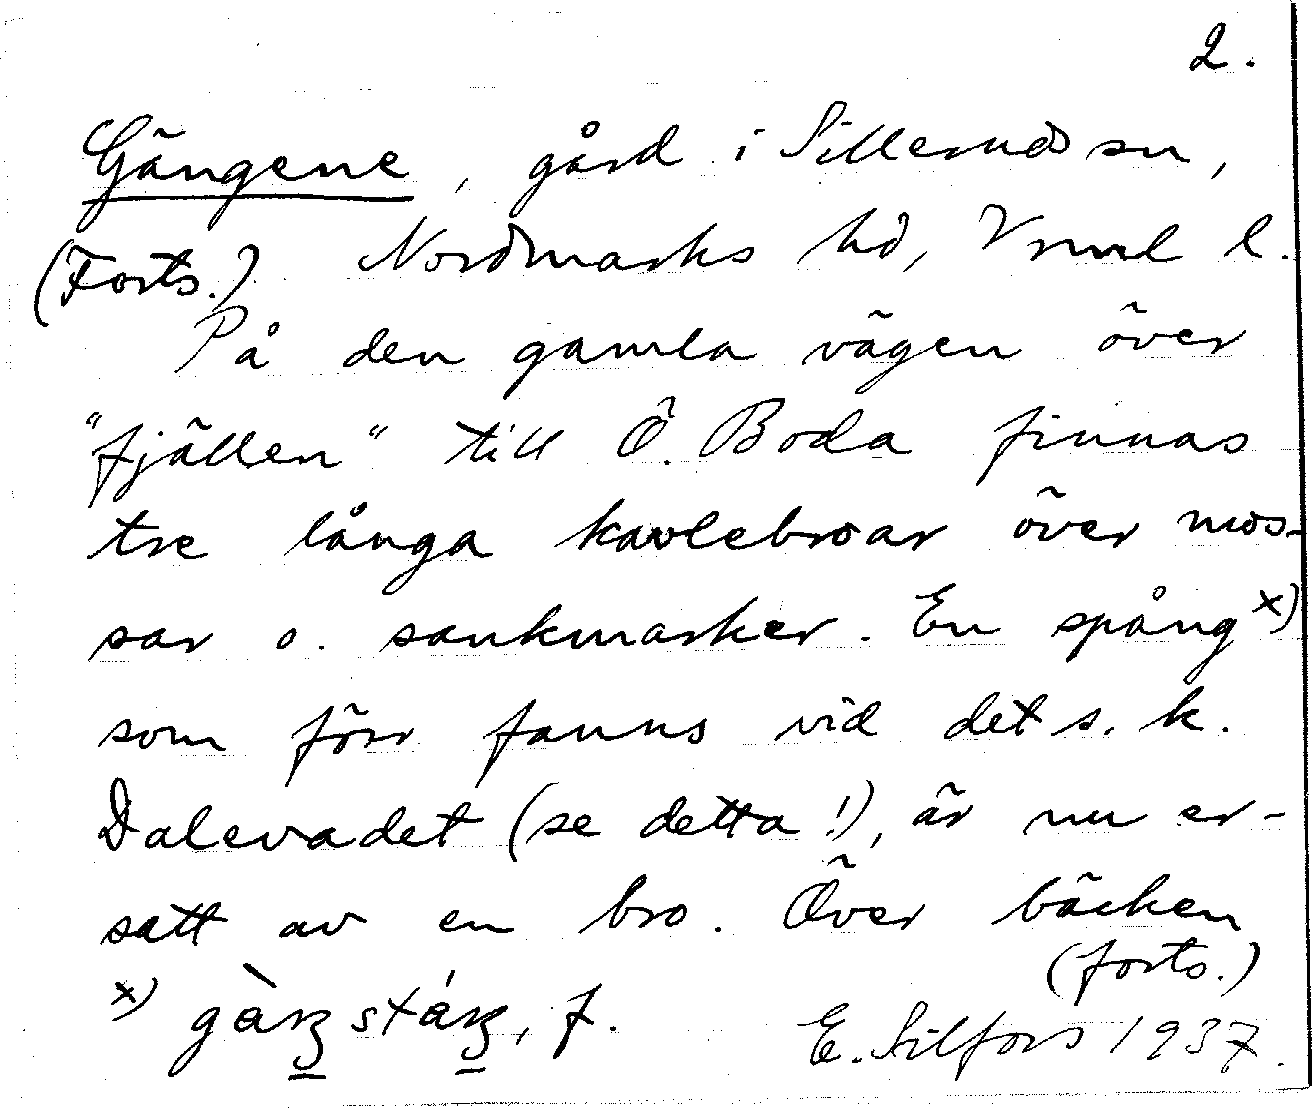 2.
Gängene, gård i Silleruds sn,
(Forts.) Nordmarks hd, Vrml l.
På den gamla vägen över
"fjällen" till Ö. Boda finnas
tre långa kavlebroar över mos-
sar o. sankmarker. En spång x)
som förr fanns vid det s. k.
Dalevadet (se detta!), är nu er-
satt av en bro. Över bäcken
(forts.)
x) , f.
E. Silfors 1937.